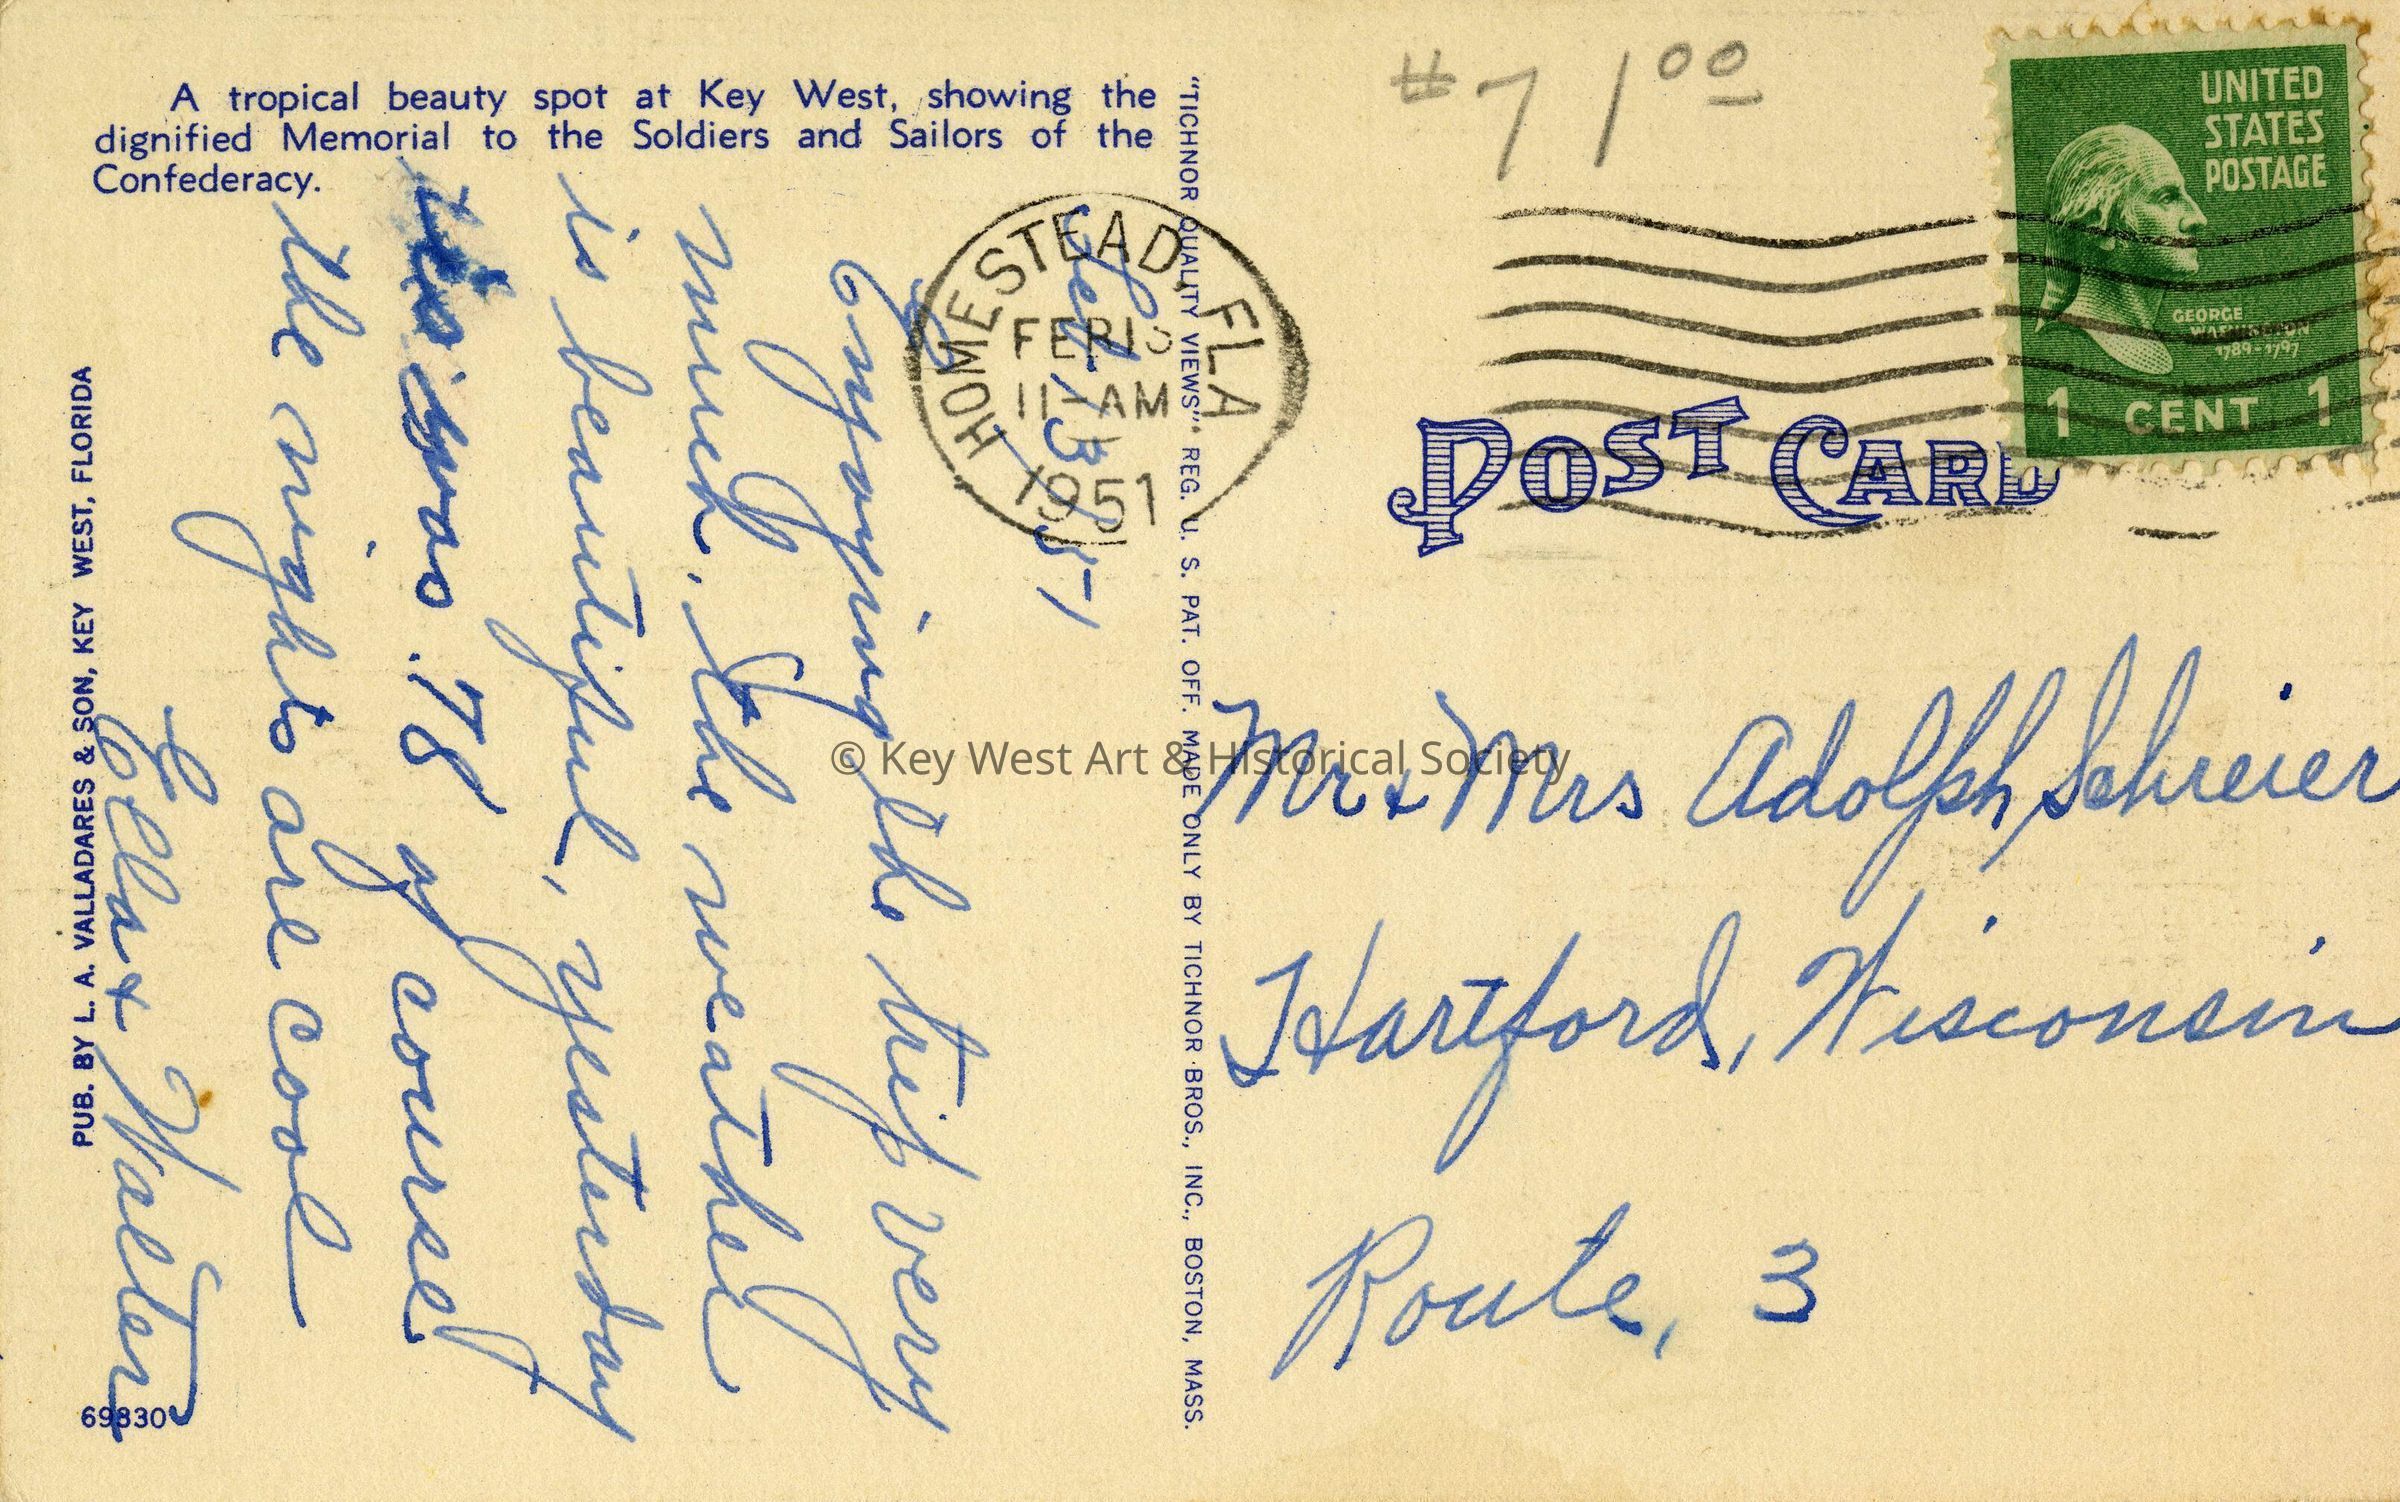 A tropical beauty spot at Key West, showing the
dignified Memorial to the Soldiers and Sailors of the
Confederacy.
PUB. BY L. A. VALLADARES & SON, KEY WEST, FLORIDA
69830
"TICHNOR QUALITY VIEWS" REG. U. S. PAT. OFF. MADE ONLY BY TICHNOR BROS., INC., BOSTON, MASS.
Feb 13, 51
Enjoying the trip very
much. The weather
is beautiful, yesterday
it was 78 of course
the nights are cool
Ella & Walter
HOMESTEAD, FLA
FEB 13
11-AM
1951
#7 1 00
UNITED
STATES
POSTAGE
GEORGE
WASHINGTON
1789-1797
1 CENT 1
POST CARD
Mr & Mrs Adolph Schreier
Hartford, Wisconsin
Route, 3
© Key West Art & Historical Society